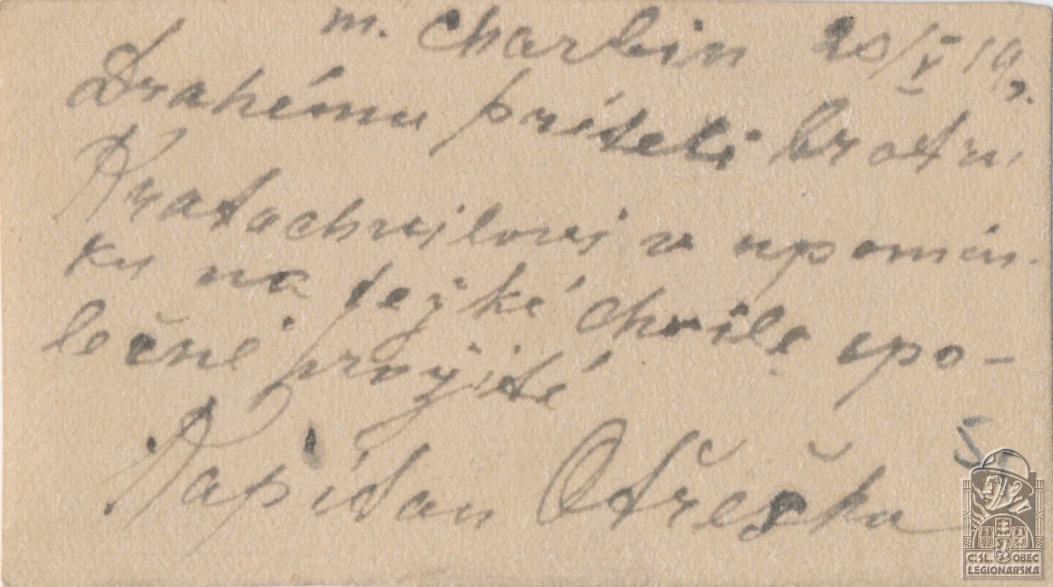 m. Charbin 20/V 19
Drahému příteli bratru
Kratochvilovi v upomín-
ku na težké chvile spo-
lečně prožité
Kapitan Otřeska
5
ČSL. OBEC
LEGIONÁŘSKÁ